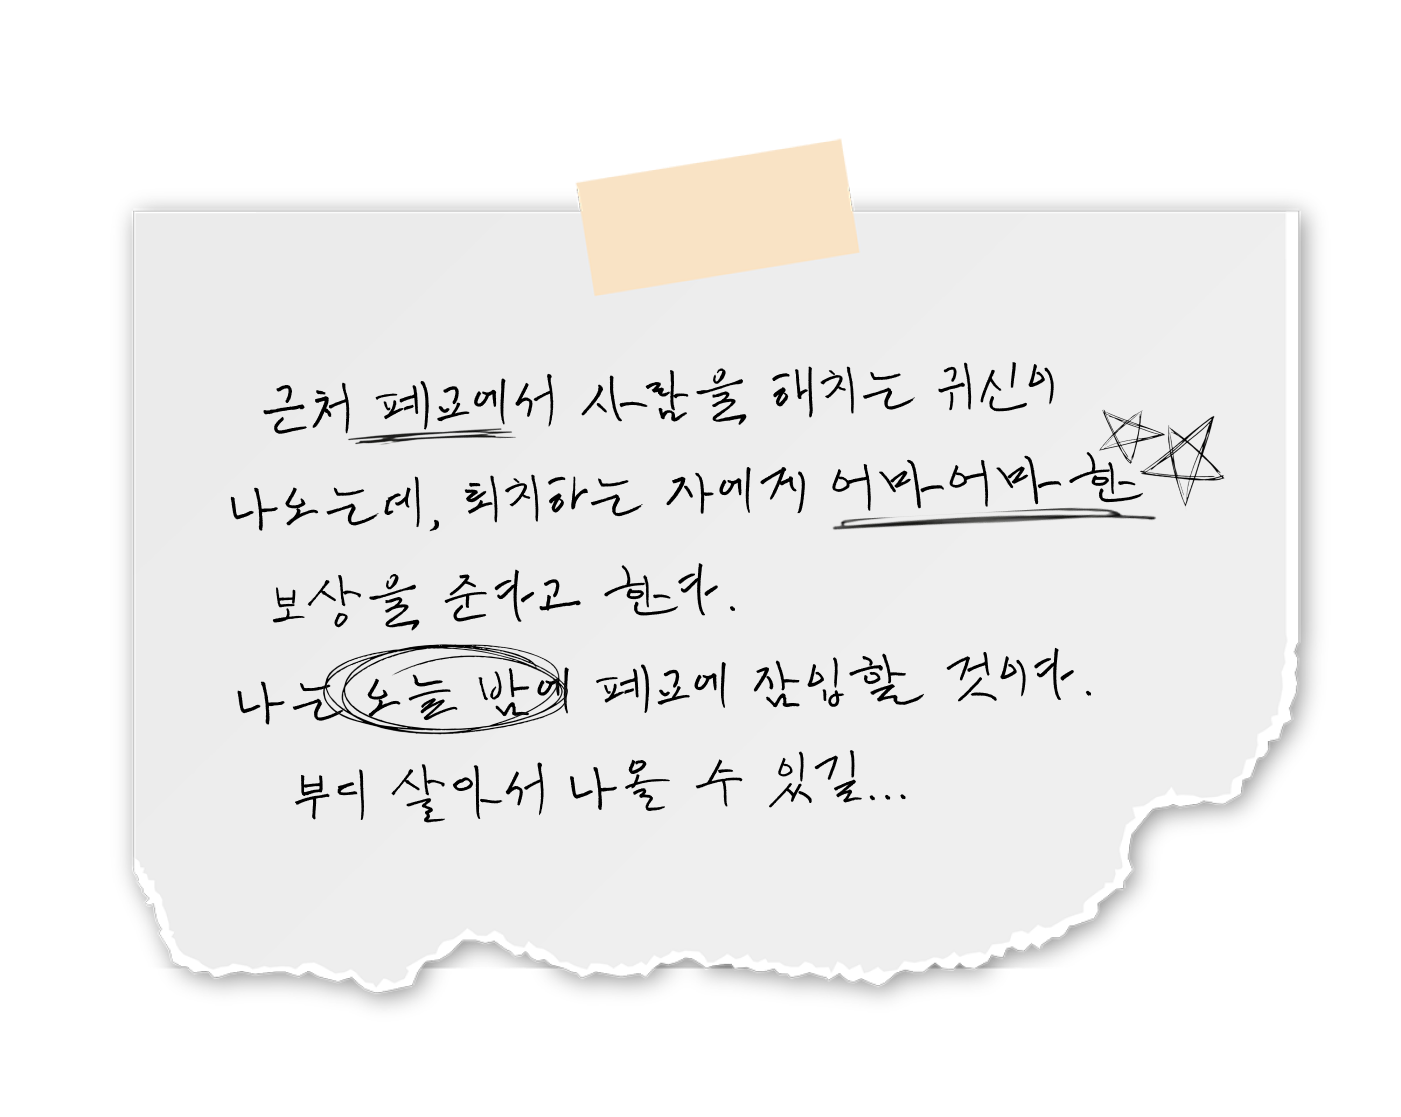 근처 폐교에서 사람을 해치는 귀신이
나오는데, 퇴치하는 자에게 어마어마한
보상을 준다고 한다.
나는 오늘 밤에 폐교에 잠입할 것이다.
부디 살아서 나올 수 있길...